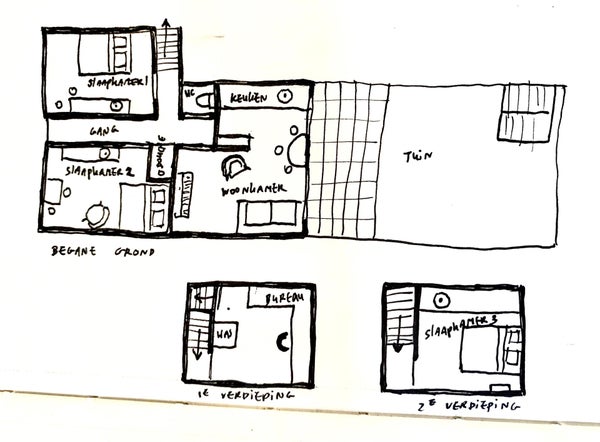 SLAAPKAMER 1
WC
KEUKEN
GANG
DOUCHE
SLAAPKAMER 2
WOONKAMER
TUIN
BEGANE GROND
BUREAU
WM
1E VERDIEPING
SLAAPKAMER 3
2E VERDIEPING